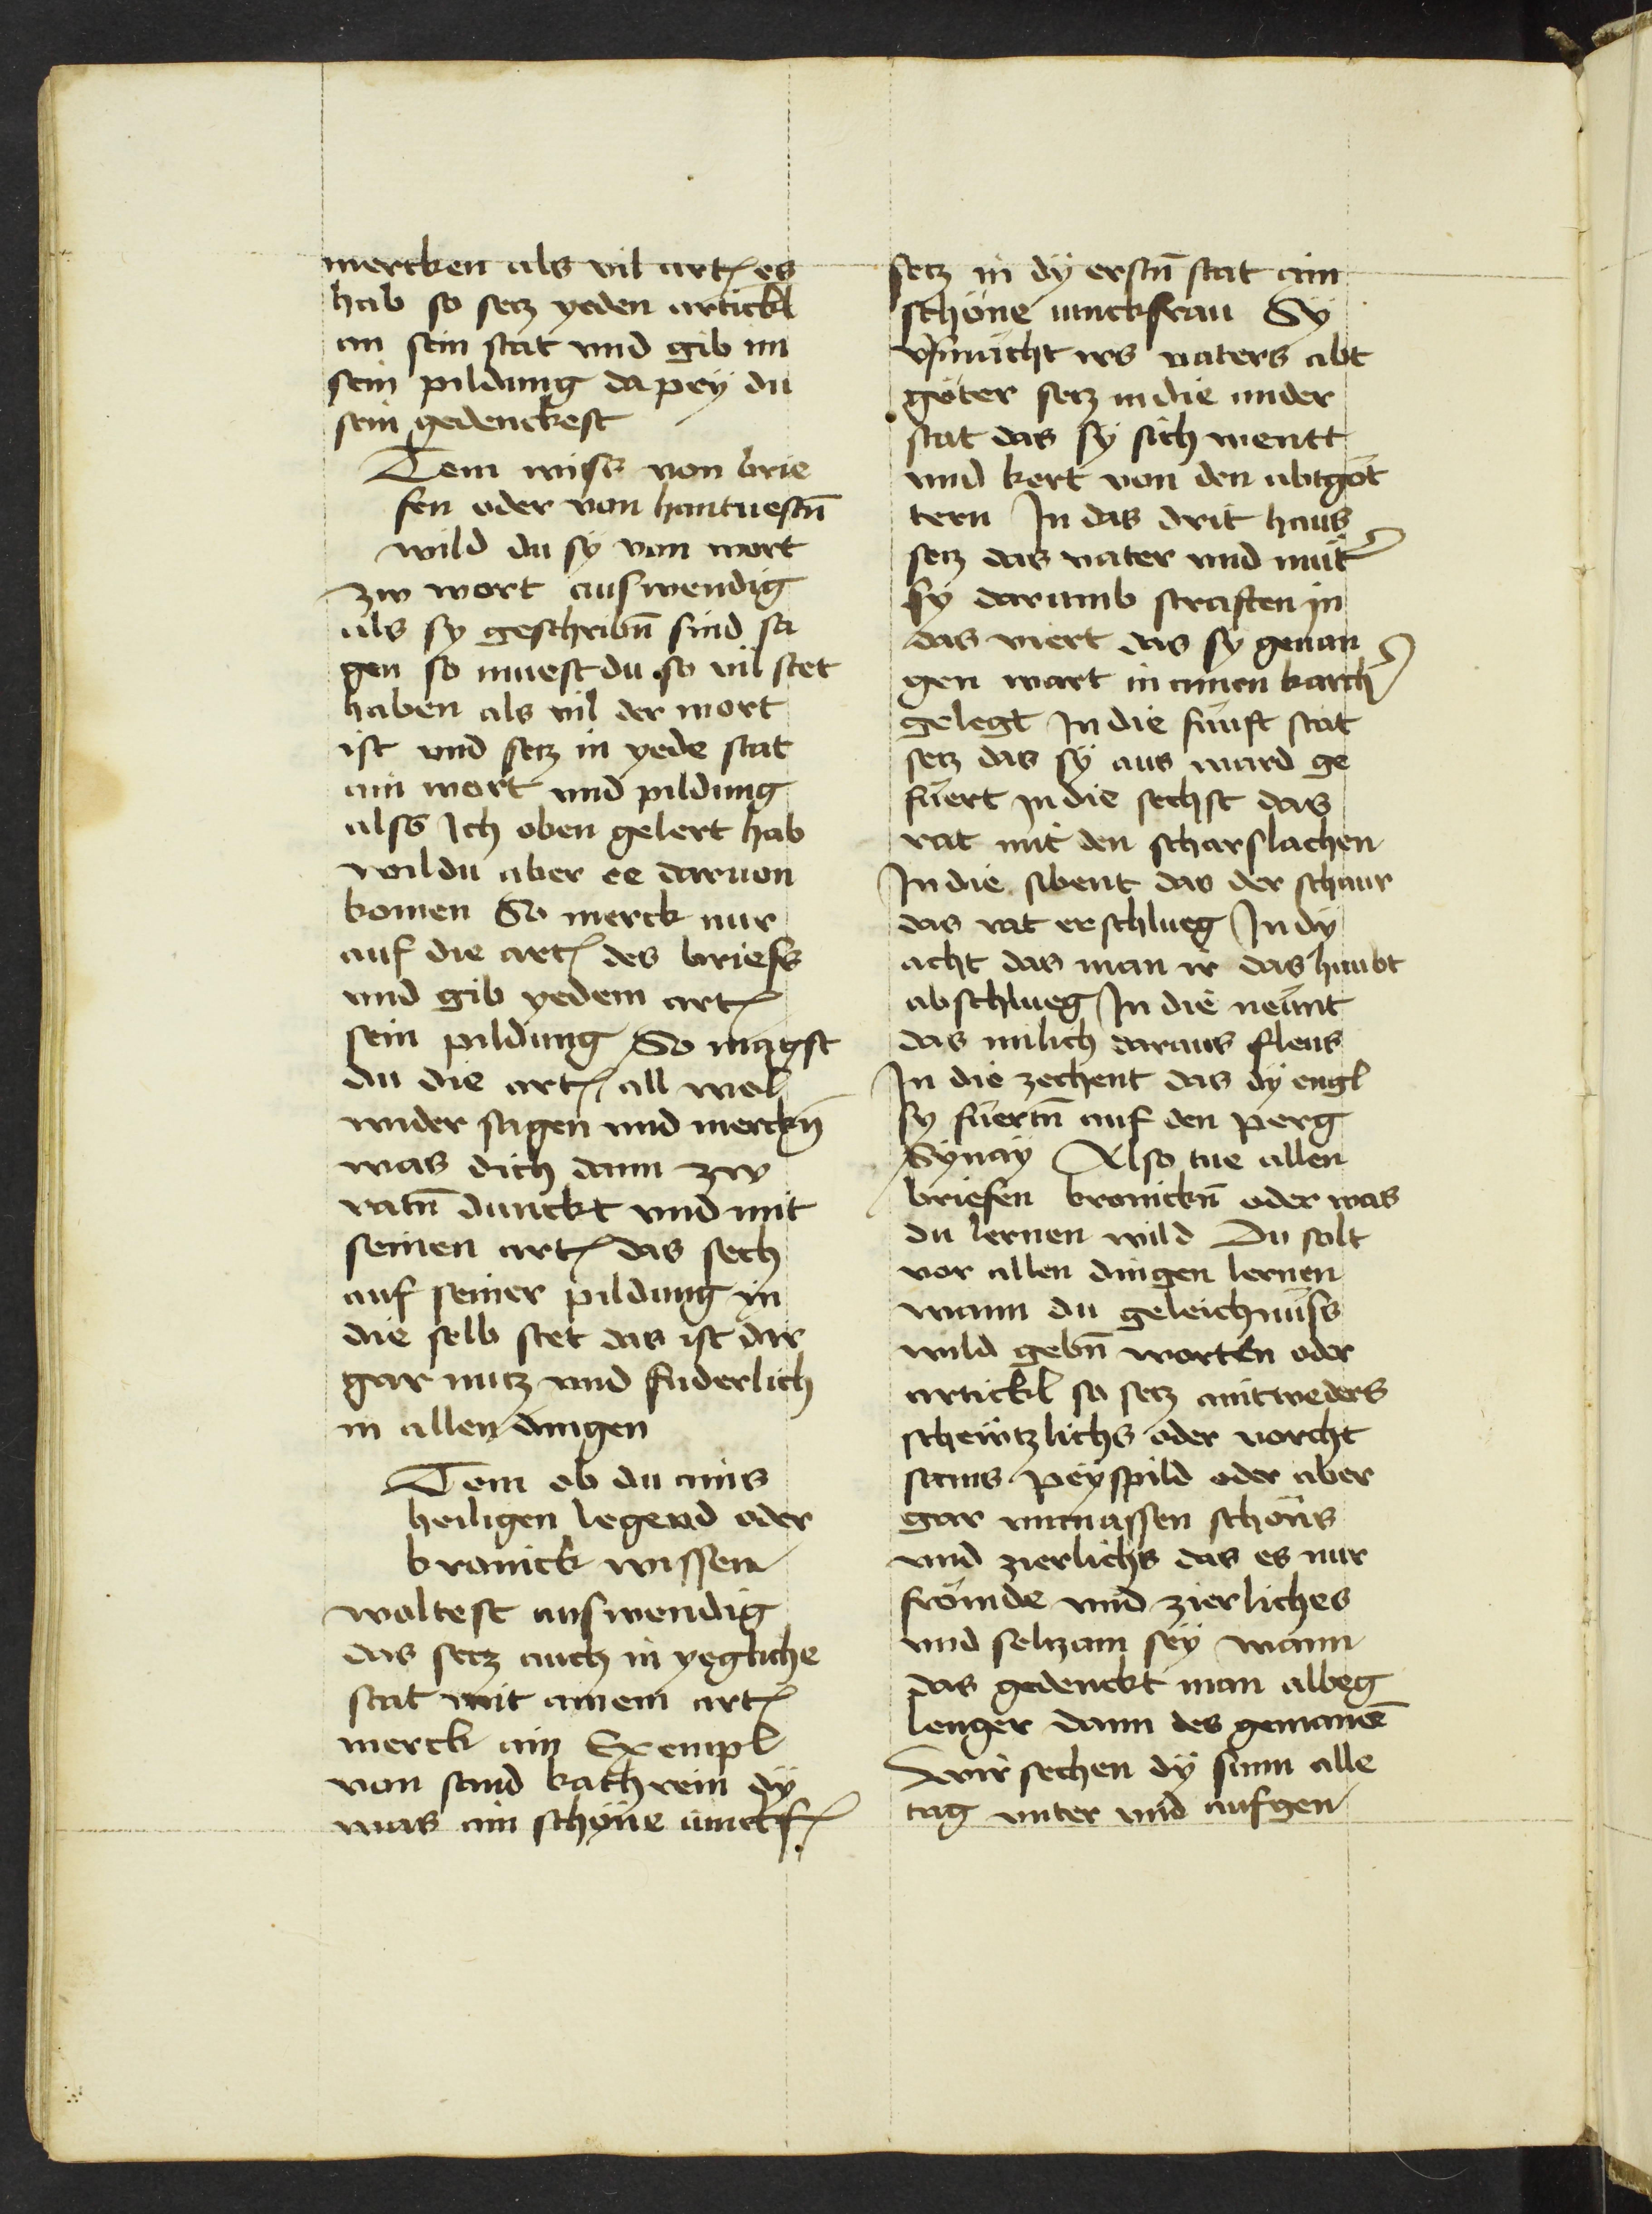 mercken als vil art es
hab so setz yeden artickl
an sein stat vnd gib im
sein pildung da pey du
sein gedenckest
Item wiss von brie
fen oder von hantuestn̄
wild du sy von wort
zw wort auswendig
als sy geschribn̄ sind sa
gen so muest du so vil stet
haben als vil der wort
ist vnd setz in yede stat
ain wort vnd pildung
alss Ich oben gelert hab
wildu aber ee daruon
komen So merck nur
auf die art des briefs
vnd gib yedem art
sein pildung So magst
du die art all wol
wider sagen vnd merckn̄
was dich dann zw
ratn̄ dunckt vnd mit
seinen art das sech
auf seiner pildung in
die selb stet das ist dir
gar nutz vnd fuderlich
in allen dingen
Item ob du ains
heiligen legend oder
kronick wissen
woltest auswendig
das setz auch in yegliche
stat mit ainem art
merck ain Exempl
von sand kathrein dy
was ain schöne iunckf
setz in dÿ erstn̄ stat ain
schöne iunckfrau Sÿ
vsmächt irs vaters abt
göter setz in die ander
stat das sÿ sich wentt
vnd kert von den abtgöt
tern In das drit haus
setz das vater vnd mut
sy darumb straften in
das viert das sy geuan
gen wart in ainen karch
gelegt In die funft stat
setz das sÿ aus ward ge
fuert in die sechst das
rat mit den scharslachen
In die sibent das der schaur
das rat erschlueg In dy
acht das man ir das haubt
abschlueg In die neunt
das milich daraus flous
In die zechent das dÿ engl
sy fuertn̄ auf den perg
Synay Also tue allen
briefen kronickn̄ oder was
du lernen wild Du solt
vor allen dingen lernen
wann du geleichnuss
wild gebn̄ worten oder
artickl so setz aintweders
schewtzlichs oder vorcht
sams peyspild oder aber
gar vnmassen schöns
vnd zierlichs das es nur
frömde vnd zierliches
vnd seltzam sey wann
das gedenckt man albeg
lenger dann des gemainē
Wir sechen dÿ sunn alle
tag vnter vnd aufgen